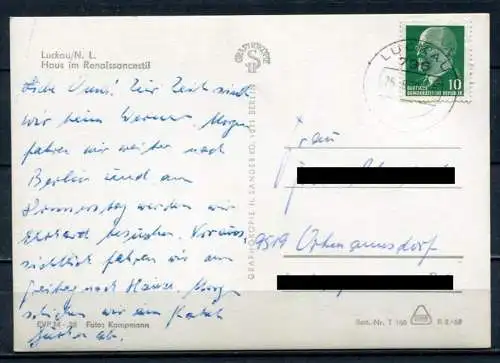 Luckau/N. L.
Haus im Renaissancestil
Liebe Omi! Zur Zeit sind
wir beim Werner. Morgen
fahren wir weiter nach
Berlin und am
Donnerstag werden wir
Ekkehard besuchen. Voraus
sichtlich fahren wir am
Freitag nach Hause. Morgen
schicken wir ein Paket
ab.
EVP M -,20 Foto: Kampmann
GRAPHOKOPIE H. SANDER KG, 1071 BERLIN
GRAPHOKOPIE
LUCKAU
10
DEUTSCHE
DEMOKRATISCHE REPUBLIK
Frau
9519 Ortmannsdorf
Best.-Nr. T 160 R 8/68